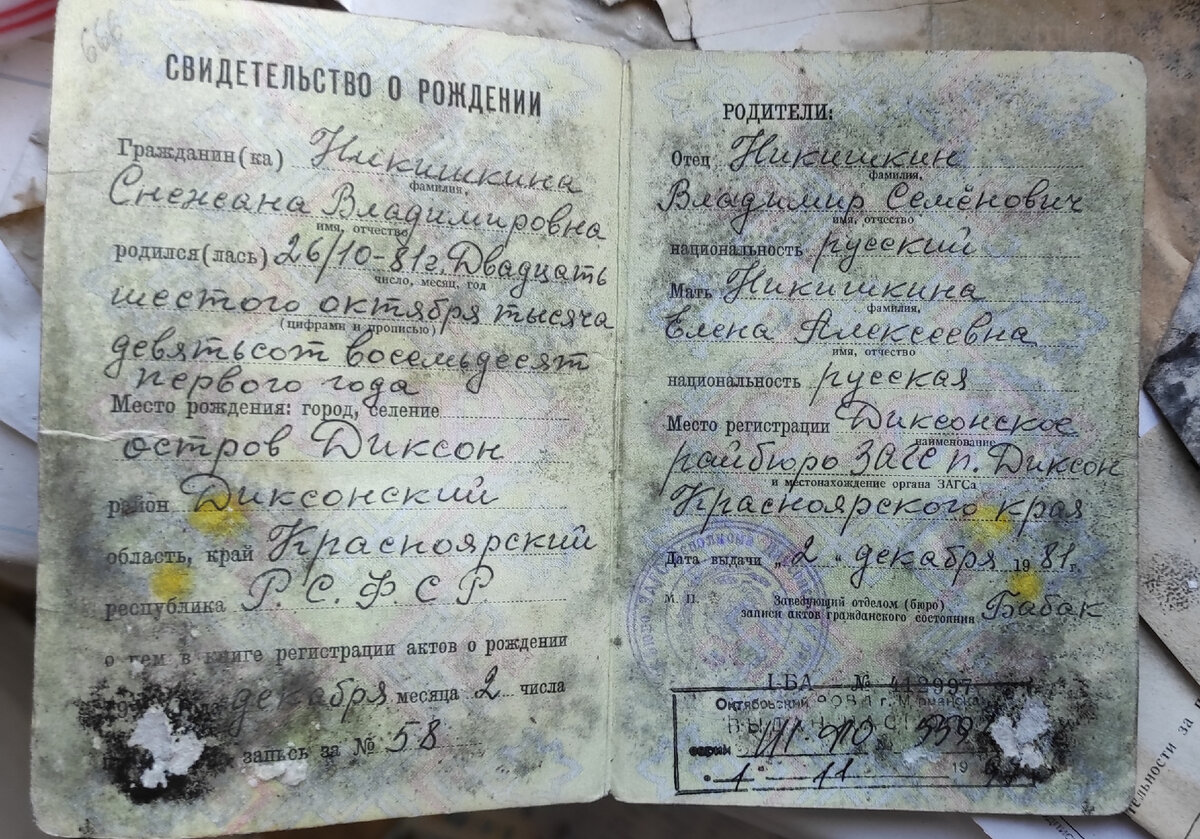 999
СВИДЕТЕЛЬСТВО О РОЖДЕНИИ
Гражданин(ка) Никишкина
фамилия,
Снежана Владимировна
имя, отчество
родился(лась) 26/10-81г. Двадцать
число, месяц, год
шестого октября тысяча
(цифрами и прописью)
девятьсот восемьдесят
первого года
Место рождения: город, селение
остров Диксон
район Диксонский
область, край Красноярский
республика Р.С.Ф.С Р
о чем в книге регистрации актов о рождении
декабря месяца 2 числа
запись за № 58
РОДИТЕЛИ:
Отец Никишкин
фамилия,
Владимир Семёнович
имя, отчество
национальность русский
Мать Никишкина
фамилия,
Елена Алексеевна
имя, отчество
национальность русская
Место регистрации Диксонское
наименование
райбюро ЗАГС п. Диксон
и местонахождение органа ЗАГСа
Красноярского края
Дата выдачи „2“ декабря 1981г.
М. П.
Заведующий отделом (бюро)
записи актов гражданского состояния Бабак
I-БА № 412997
Октябрьский РОВД г. Мурманска
серии
1 11 19